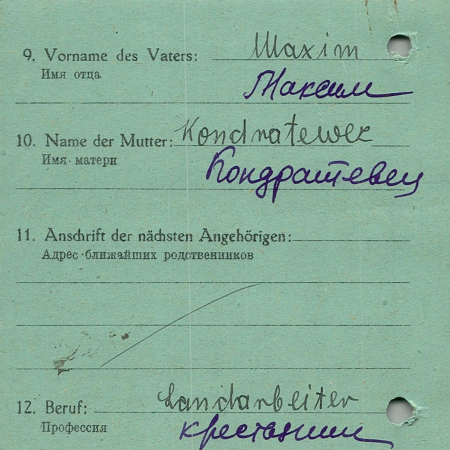 9. Vorname des Vaters: Maxim
Имя отца Максим
10. Name der Mutter: Kondratewez
Имя матери Кондратевец
11. Anschrift der nächsten Angehörigen:
Адрес ближайших родственников
12. Beruf: Landarbeiter
Профессия крестьянин